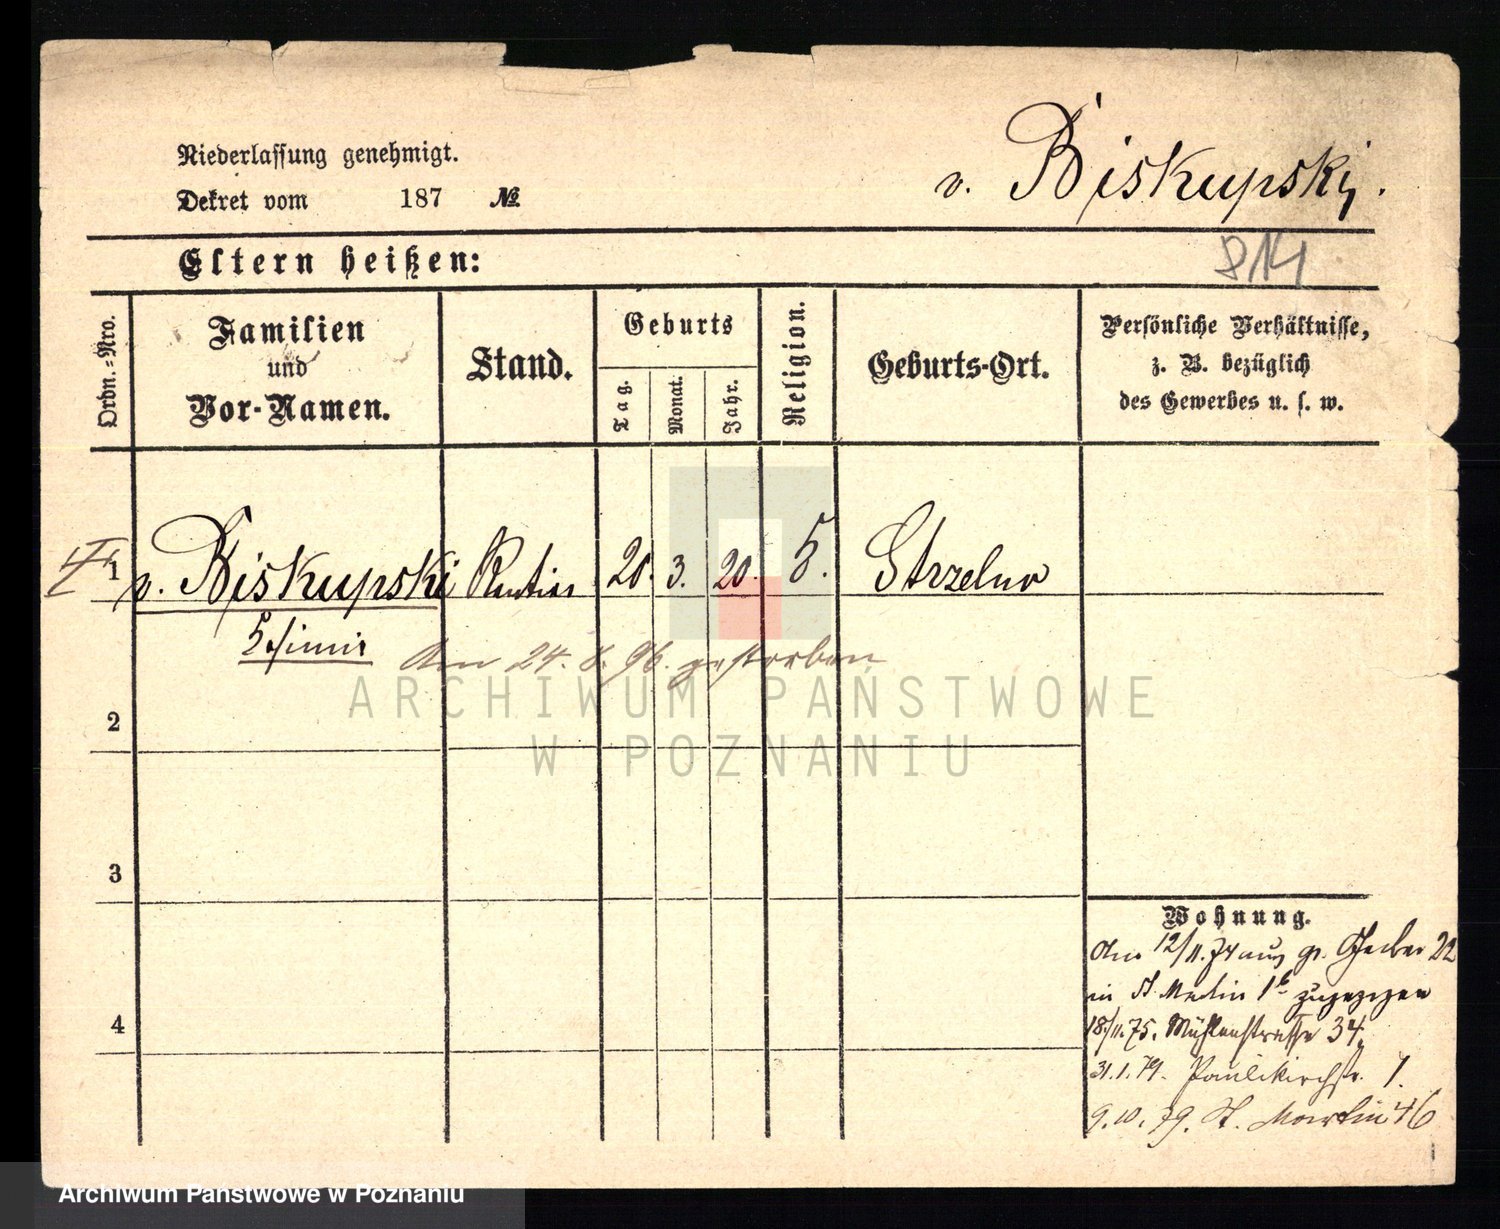 Niederlassung genehmigt.
Dekret vom 187 №
v. Biskupski.
Eltern heißen:
814
Ordn.-Nro.
Familien
und
Vor-Namen.
Stand.
Geburts
Tag.
Monat.
Jahr.
Religion.
Geburts-Ort.
Persönliche Verhältnisse,
z. B. bezüglich
des Gewerbes u. s. w.
1 v. Biskupski Rentier 20. 3. 20. Strzelno
den 24. 8. 96. gestorben
ARCHIWUM PAŃSTWOWE
W POZNANIU
2
3
4
Wohnung.
den 12/11. 74 aus gr. 22
in St. Martin zugezogen
18/11. 75. Mühlenstrasse 34.
31.1.79. Paulikirchstr. 1.
9.10.79. St. Martin 46
Archiwum Państwowe w Poznaniu